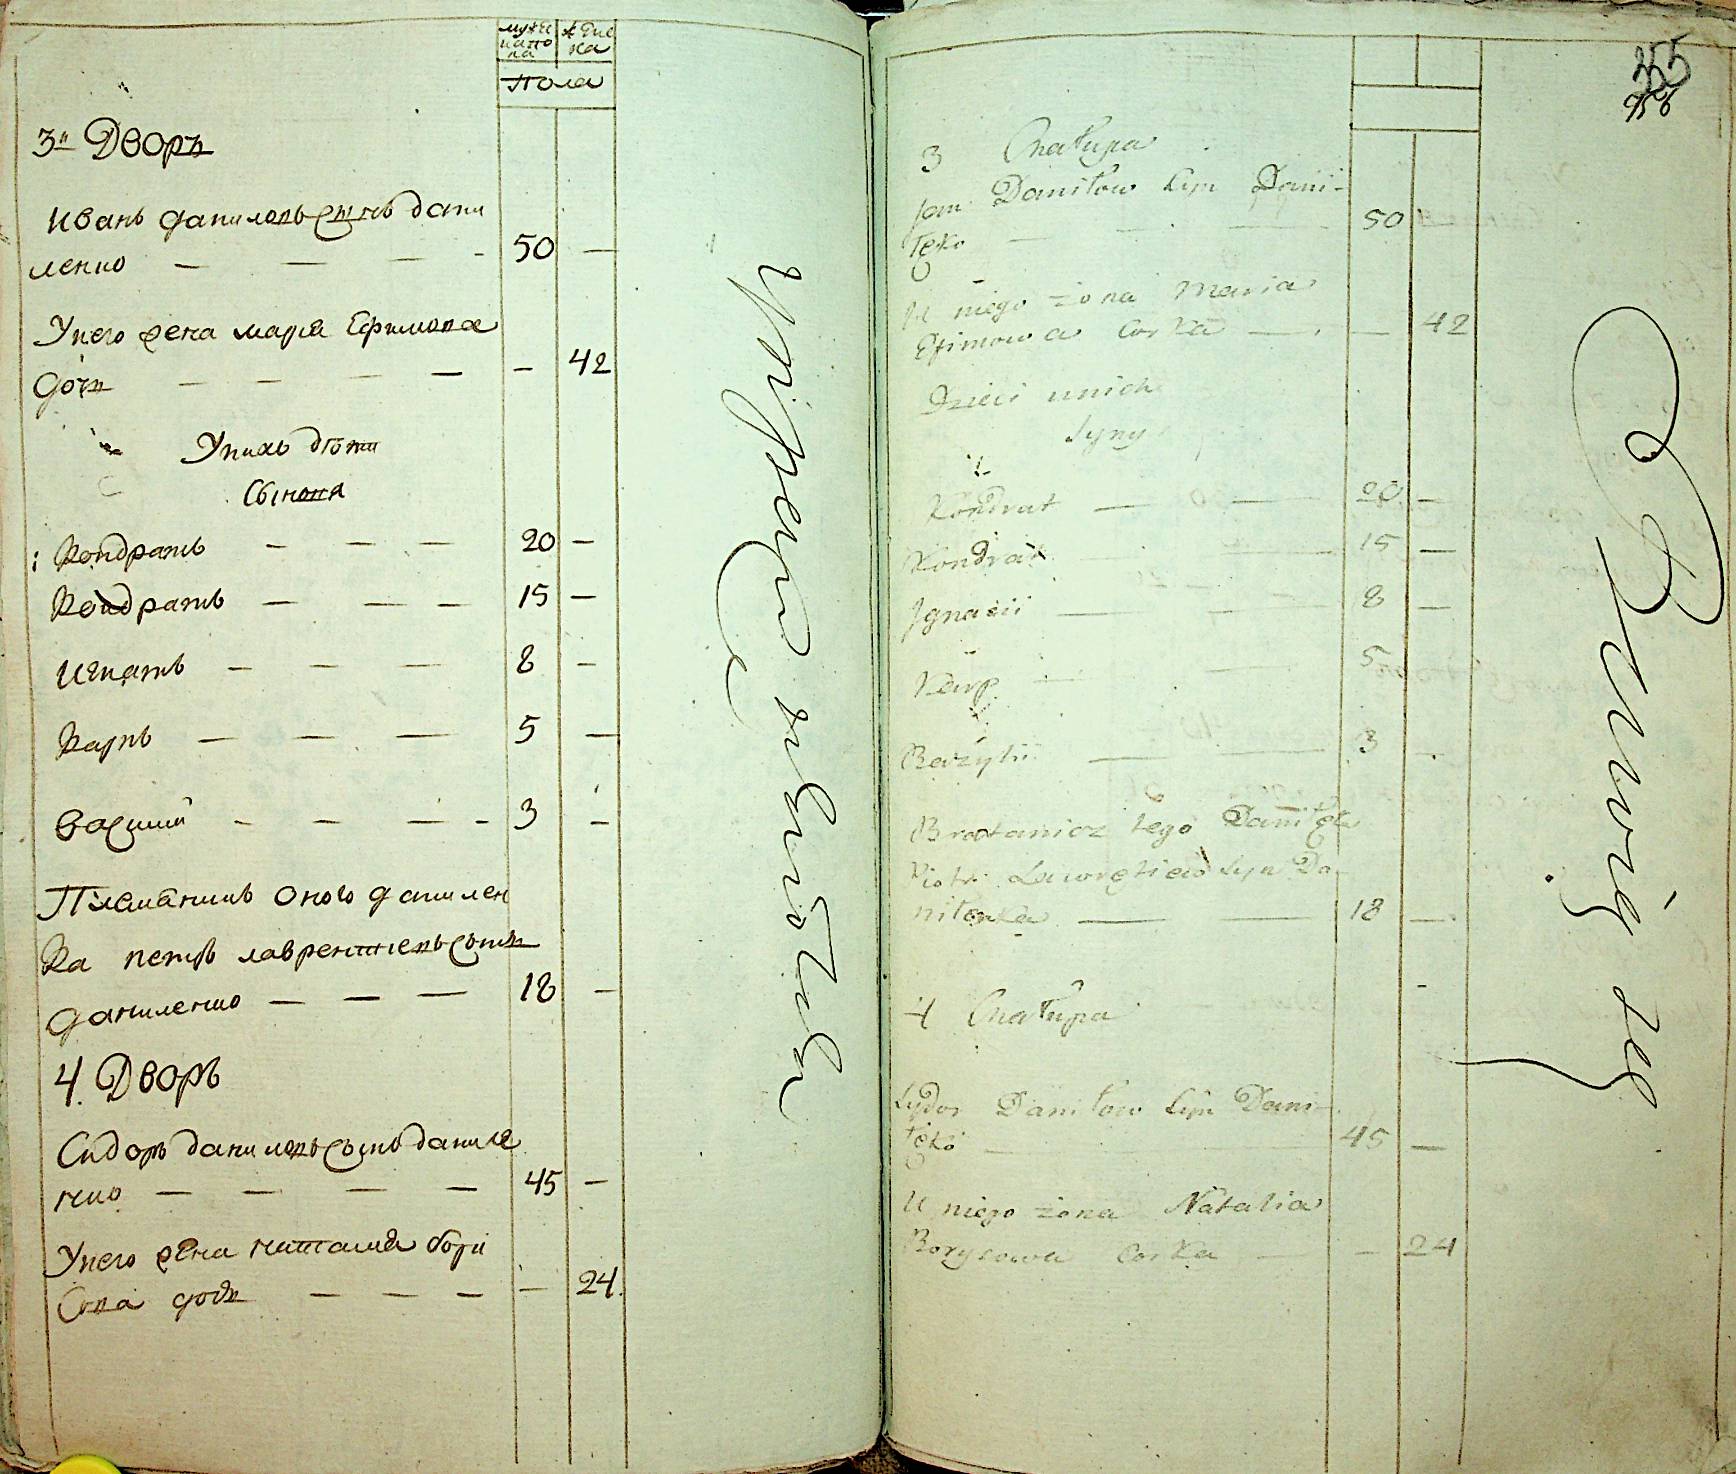 мужс
каго
па
жене
ка
Пола
3й Дворъ
Иванъ даниловъ сынъ дани
ленко — — — - 50 —
У него жена марія Ефимова
дочъ — — — — - 42
У нихъ дѣти
Сынова
Кондратъ - — — 20 —
Кондратъ — — — 15 —
Игнатъ - — — 8 —
Карпъ — — — 5 —
Василий - — — - 3 —
Племѣнникъ оного данилен
ка петръ лаврентиевъ сынъ
даниленко — — — 18 —
4. Дворъ
Сидоръ даниловъ сынъданиле
нко — — — — 45 —
У него жена наталия бори
сова дочъ — — — — — 24.
355
956
3 Chałupa
Jan Daniłow syn Dani-
łęko — - — 50
U niego żona Maria
Efimowa Corka — . — 42
Dzieci u nich
Syny
Kondrat — — 20 —
Kondrat — — 15 —
Jgnacii — — 8 —
Karp — — 5
Bazylii — — 3 -
Bratanicz tego Daniłęka
Piotr Lawrętiew syn Da-
niłenka — — 18 —
4 Chałupa
Sydor Daniłow Syn Dani-
łęko — 45 —
U niego żona Natalia
Borysowa Corka — — 24